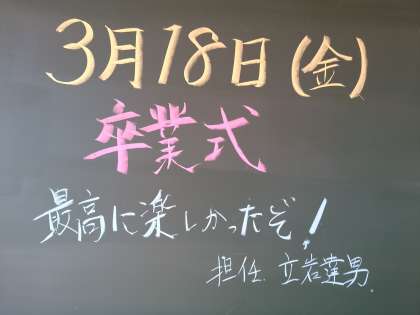 3月18日(金)
卒業式
最高に楽しかったぞ!
担任 立岩達男